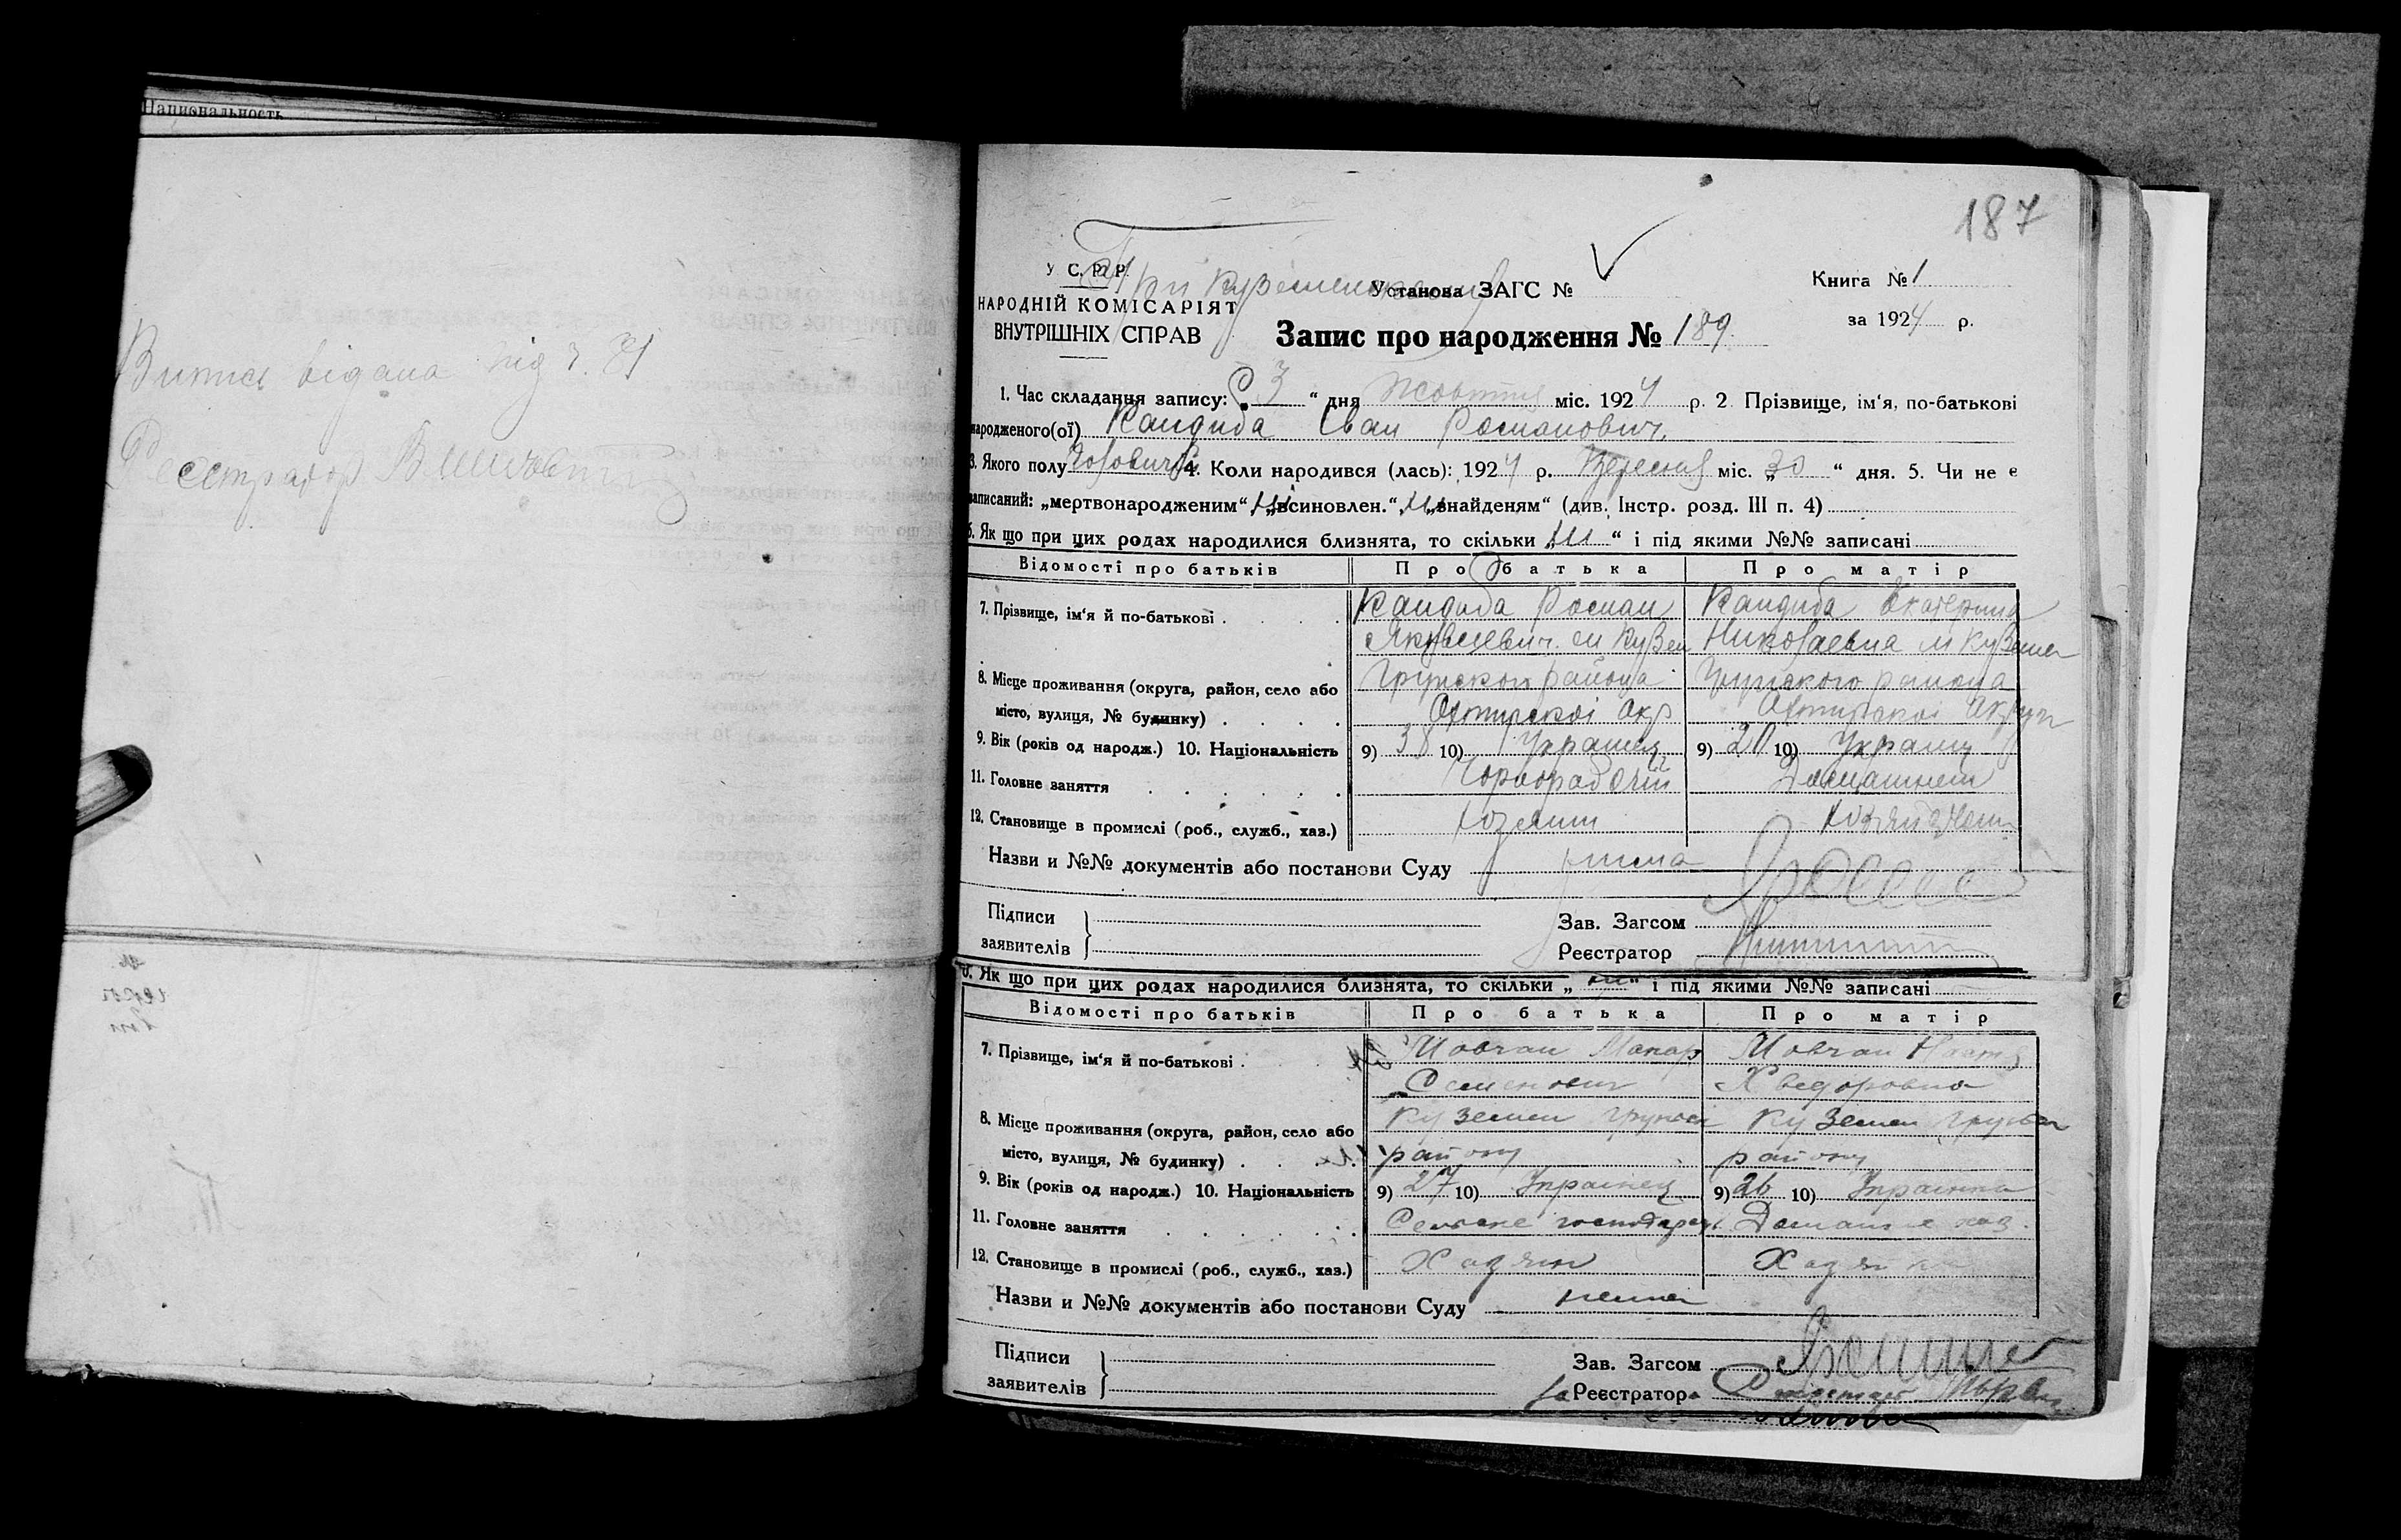 Національность
Витяг видана під ч. 71
Реєстратор
187
У. С. Р. Р.
НАРОДНІЙ КОМІСАРІЯТ
ВНУТРІШНІХ СПРАВ
При Куземенському
Установа ЗАГС №
Книга № 1
за 1924 р.
Запис про народження № 189.
1. Час складання запису: „3“ дня Жовтня міс. 1924 р. 2. Прізвище, ім‘я, по-батькові
народженого(ої) Кандиба Іван Романович.
3. Якого полу Чоловичій 4. Коли народився (лась): 1924 р. Вересня міс. „30“ дня. 5. Чи не є
записаний: „мертвонародженим“ ні „всиновлен.“ ні „знайденям“ (див. Інстр. розд. III п. 4)
6. Як що при цих родах народилися близнята, то скільки „ні“ і під якими №№ записані
Відомості про батьків Про батька Про матір
7. Прізвище, ім‘я й по-батькові . Кандиба Роман Кандиба Екатерина
Николаевна м Куземен
8. Місце проживання (округа, район, село або Грунского района Грунского района
місто, вулиця, № будинку) . Охтирскоі Окр Охтирскоі Округи
9. Вік (років од народж.) 10. Національність 9) 38 10) Украінец 9) 20 10) Украінц
11. Головне заняття Чорнорабочій Домашнем
12. Становище в промислі (роб., служб., хаз.)
Назви и №№ документів або постанови Суду нима
Підписи
заявителів
Зав. Загсом
Реєстратор
6. Як що при цих родах народилися близнята, то скільки „ні“ і під якими №№ записані
Відомості про батьків Про батька Про матір
7. Прізвище, ім‘я й по-батькові . Мовчан Макар Мовчан Настя
Семенович Хведоровна
8. Місце проживання (округа, район, село або Куземен Грунскі Куземен Грунск
місто, вулиця, № будинку) . району району
9. Вік (років од народж.) 10. Національність 9) 27 10) Украінец 9) 26 10) Украінка
11. Головне заняття Селянське господарсь. Домашне хаз.
12. Становище в промислі (роб., служб., хаз.) Хазяін Хазяйка
Назви и №№ документів або постанови Суду нема
Підписи
заявителів
Зав. Загсом
За Реєстратора Секретарь